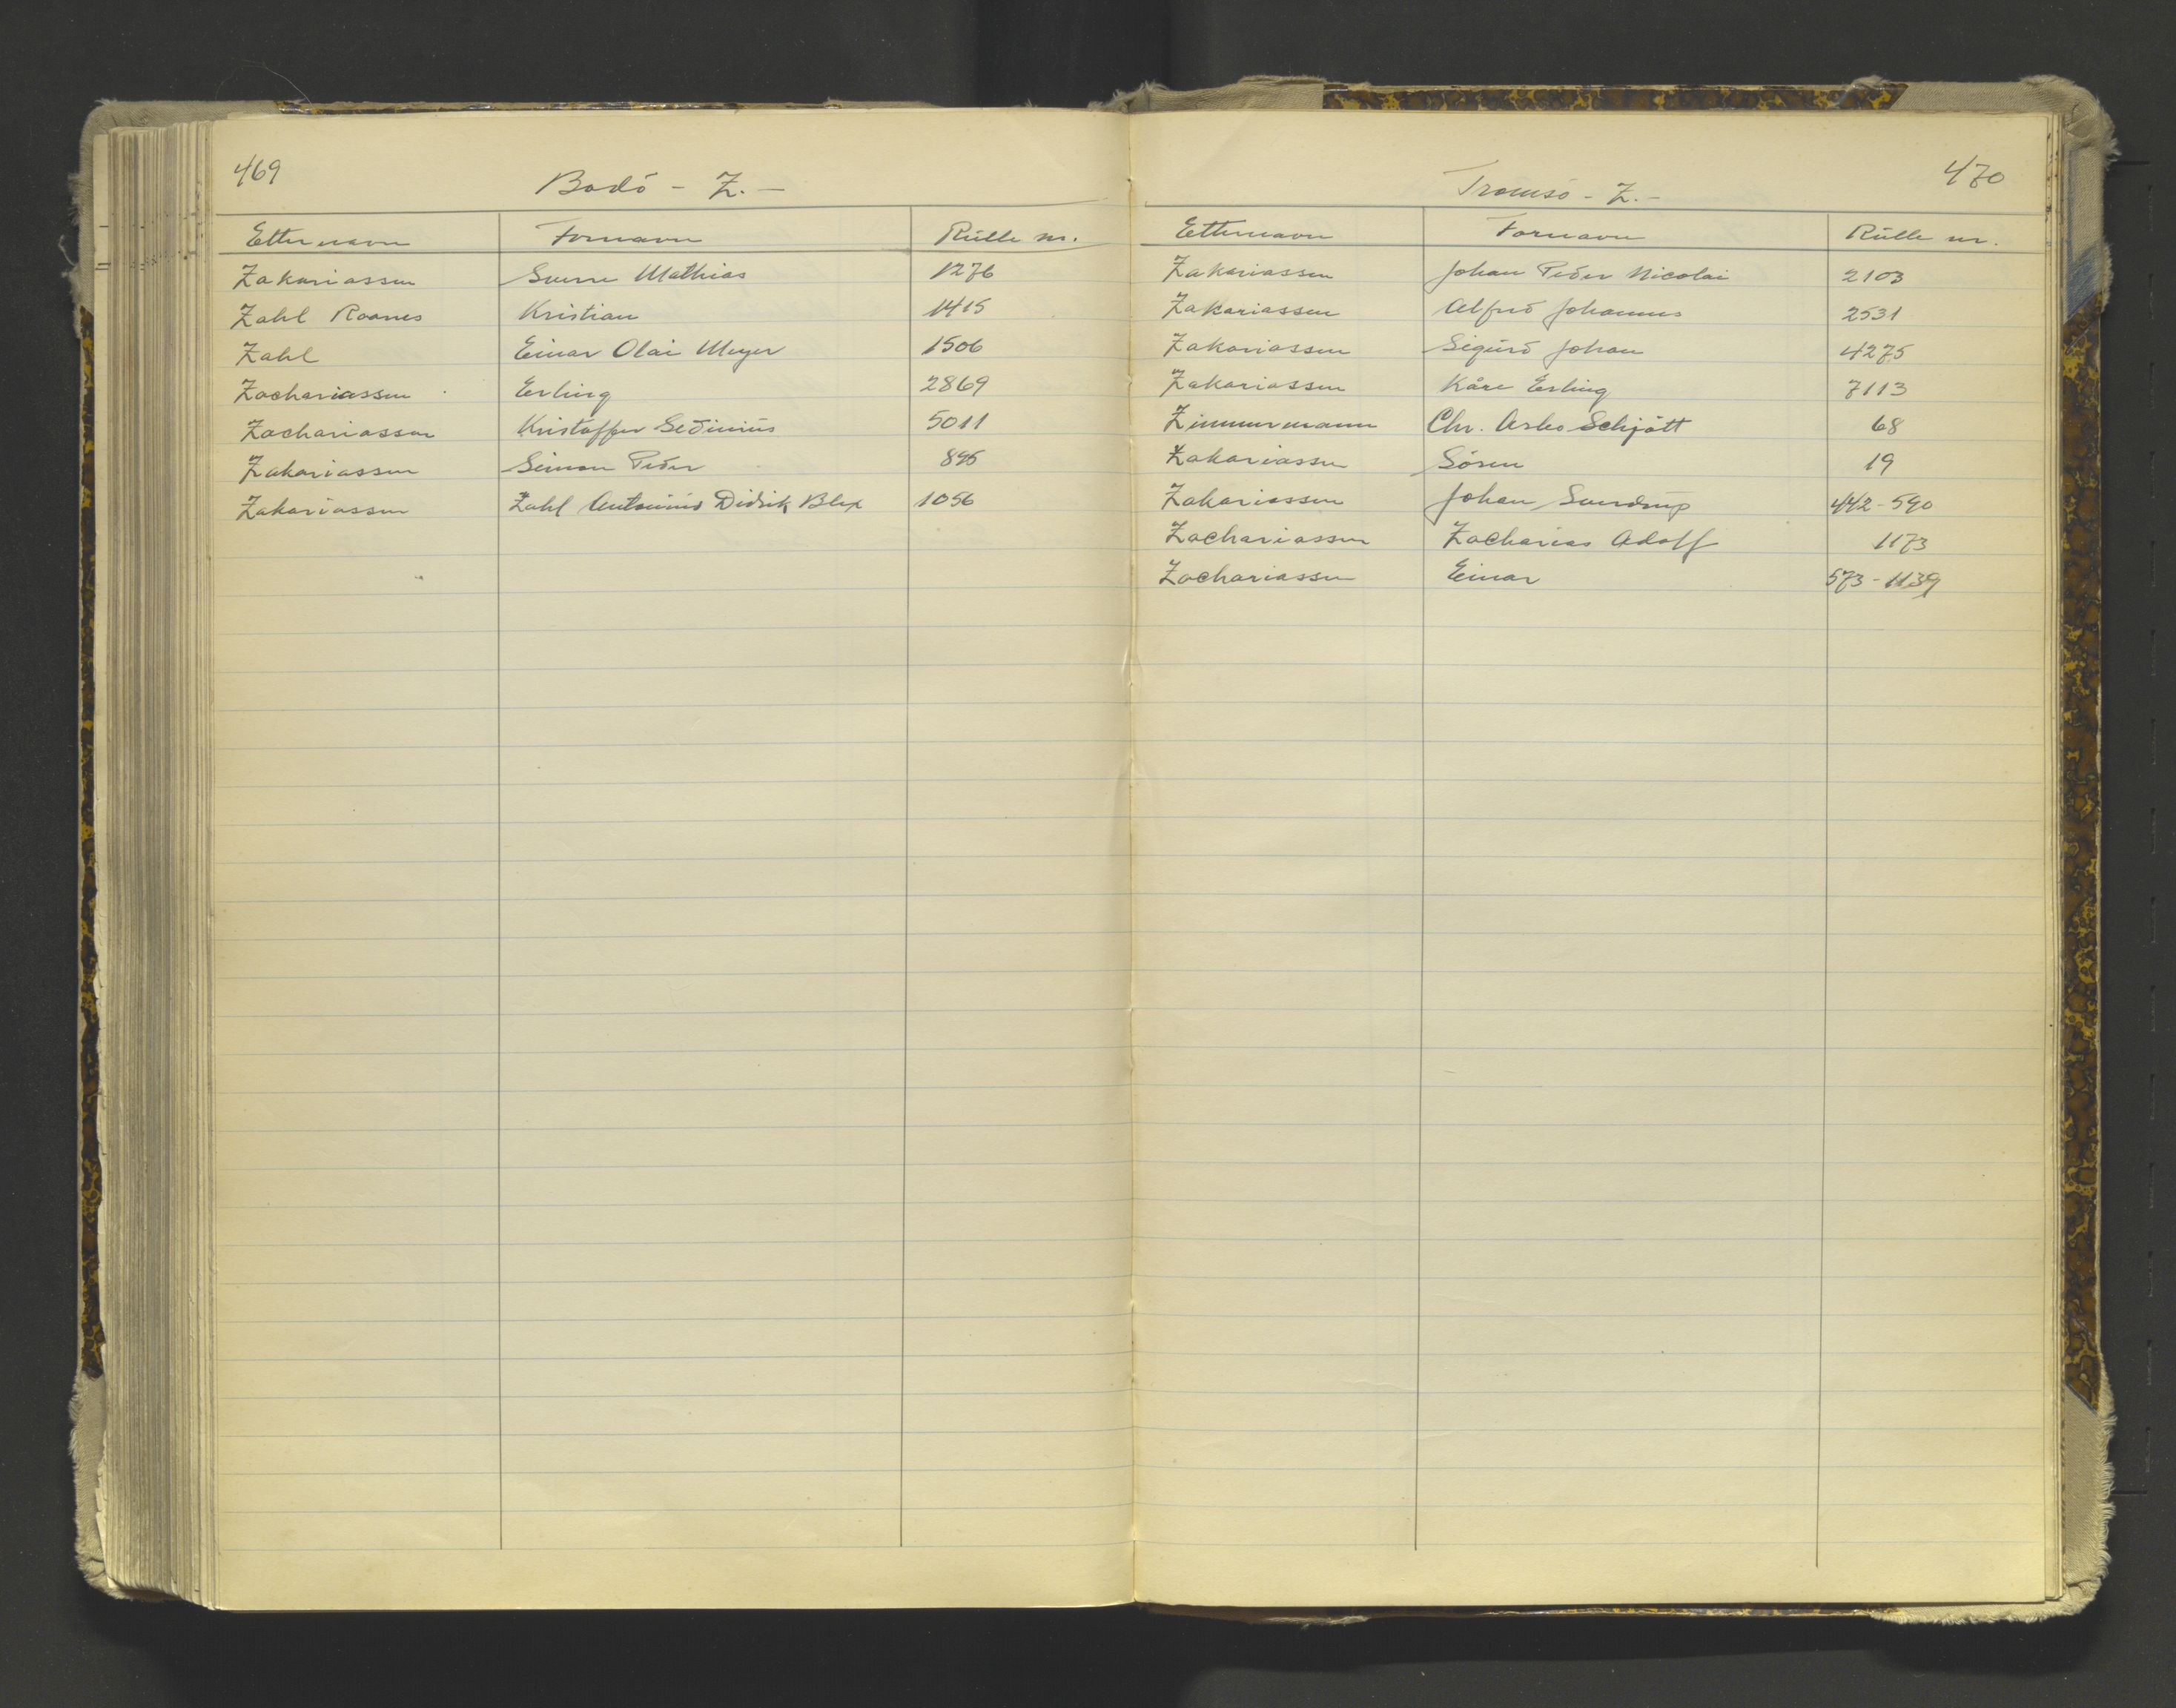 469
Bodö - Z. -
Etternavn Fornavn Rülle nr.
Zakariassen Sverre Mathias 1276
Zahl Roanes Kristian 1415
Zahl Einar Olai Meyer 1506
Zachariassen Erling 2869
Zachariassen Kristoffer Sedinius 5011
Zakariassen Simon Peder 895
Zakariassen Zahl Antonius Didrik Blix 1056
470
Tromsö - Z. -
Etternavn Fornavn Rülle nr.
Zakariassen Johan Peder Nicolai 2103
Zakariassen Alfred Johannes 2531
Zakariassen Sigurd Johan 4275
Zakariassen Kåre Erling 7113
Zimmermann Chr. Asbo Schjött 68
Zakariassen Sören 19
Zakariassen Johan Sundrup 442-590
Zachariassen Zacharias Adolf 1173
Zachariassen Einar 573-1139